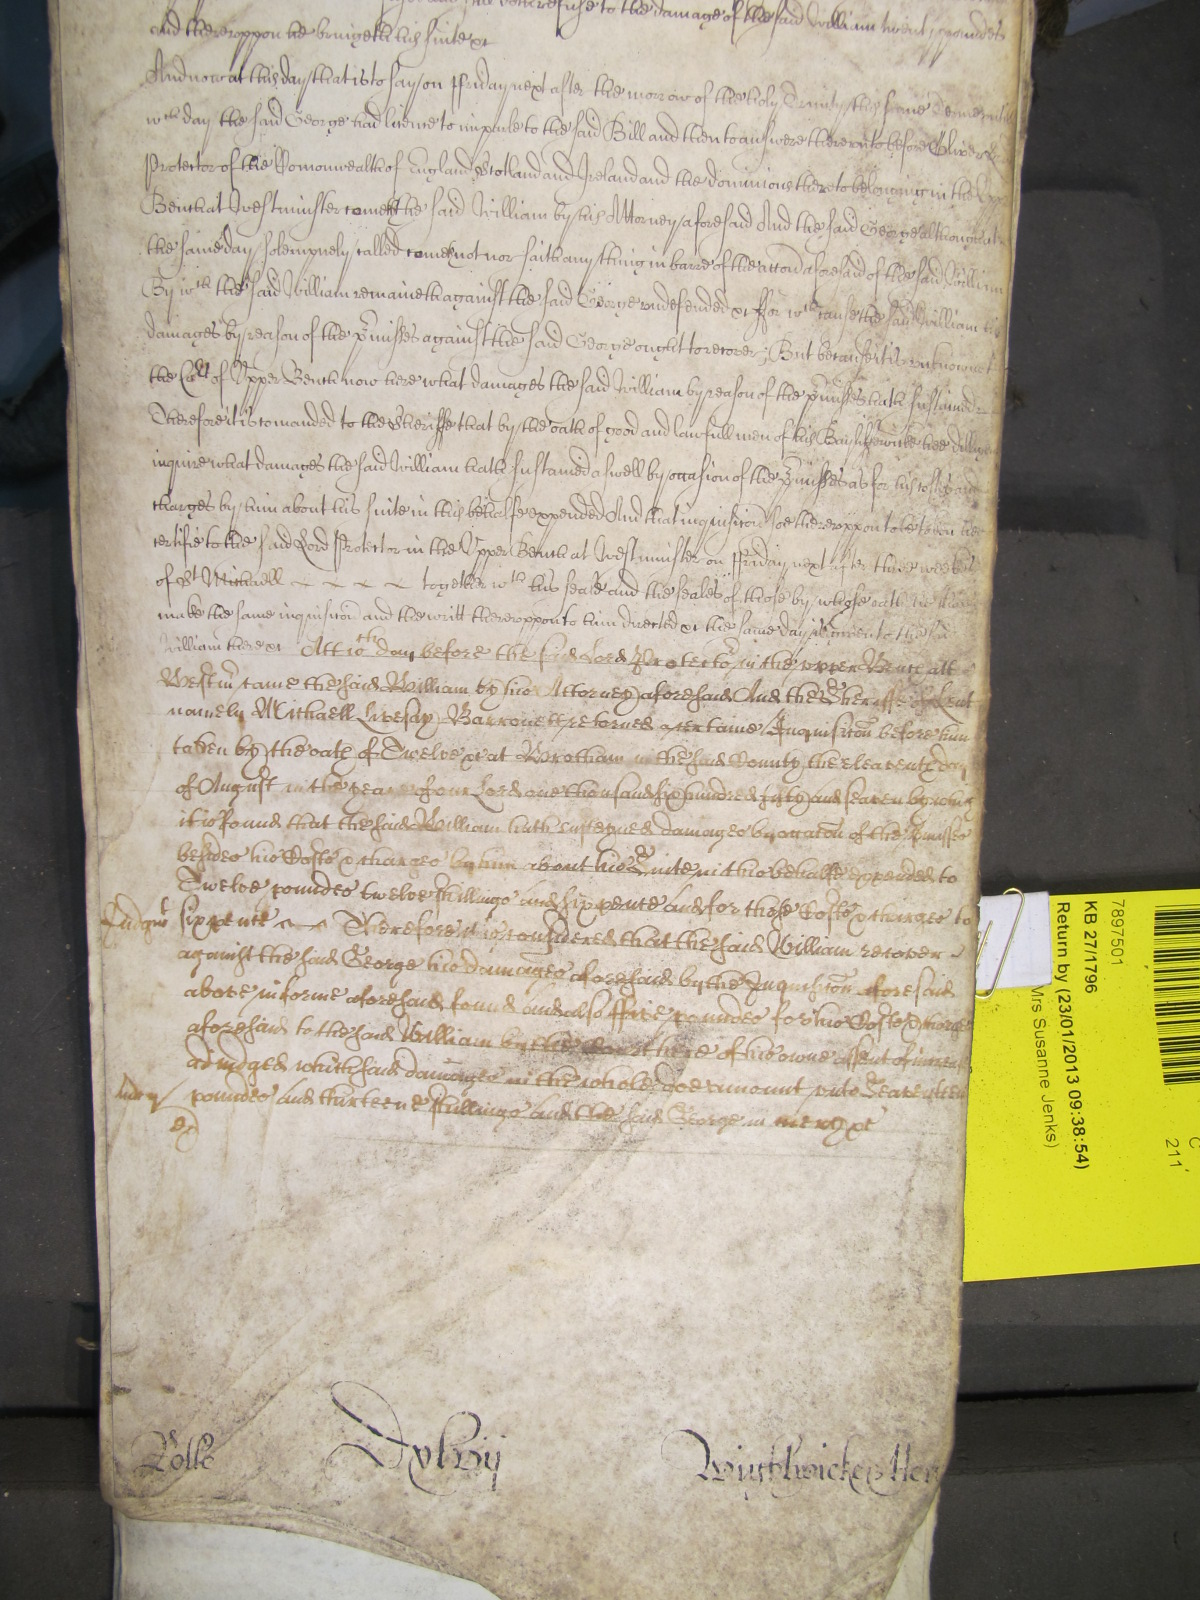 doth refuse to the damage of the said William twenty pounds
And thereuppon he bringeth his suite &c
And now at this day that is to say on ffriday next after the morrow of the holy Trinity this same Terme untill
wch day the said George had licence to imparle to the said Bill and then to answere thereunto before Oliver Lord
Protector of the Comonwealth of England Scotland and Ireland and the dominions thereto belonging in the Upper
Bench at Westminster cometh the said William by his Attorney aforesaid And the said George although att
the same day solempnely called cometh not nor saith any thing in barre of the accon aforesaid of the said William
By wch the said William remaineth against the said George undefended &c ffor wch cause the said William his
damages by reason of the pmisses against the said George ought to recover; But because it is unknowne to
the Crt of Upper Bench now here what damages the said William by reason of the pmisses hath sustained
Therefore it is comanded to the Sheriffe that by the oath of good and lawfull men of his Bayliffewicke hee diligently
inquire what damages the said William hath sustained aswell by occasion of the pmisses as for his costs and
charges by him about his suite in this behalfe expended And that inquisicon soe thereuppon to be taken hee
certifie to the said Lord Protector in the Upper Bench at Westminster on ffriday next after three weekes
of St Michaell together wth his seale and the seales of those by whose oath he shall
make the same inquisicon and the writt thereuppon to him directed &c the same day is given to the said
William there &c Att wch day before the said Lord Protector in the upper Bench att
Westmr came the said William by his Attorney aforesaid And the Sheriffe of Kent
namely Michaell Livesay Barronett returned a certaine Inquisicon before him
taken by the oath of Twelve &c at Wrotham in the said County the eleaventh day
of August in the yeare of our Lord one thousand six hundred fifty and seaven by wch
it is found that the said William hath susteyned damages by occacon of the pmisses
besides his Costs & charges by him about his Suite in this behalfe expended to
Twelve poundes twelve shillings and six pence and for those Costs & charges to
Judgmt six pence Therefore it is considered that the said William recover
against the said George his damages aforesaid by the Inquisicon aforesaid
above in forme aforesaid found and also ffive poundes for his Costs & charges
aforesaid to the said William by the Court here of his owne assent of increase
adjudged which said damages in the whole doe amount unto Seaventeen
mercy poundes and thirteene shillings and the said George in mercy &c
Rolle
Dxlvij
Wightwicke
7897501
KB 27/1796
Return by (23/01/2013 09:38:54)
Mrs Susanne Jenks)
C
211